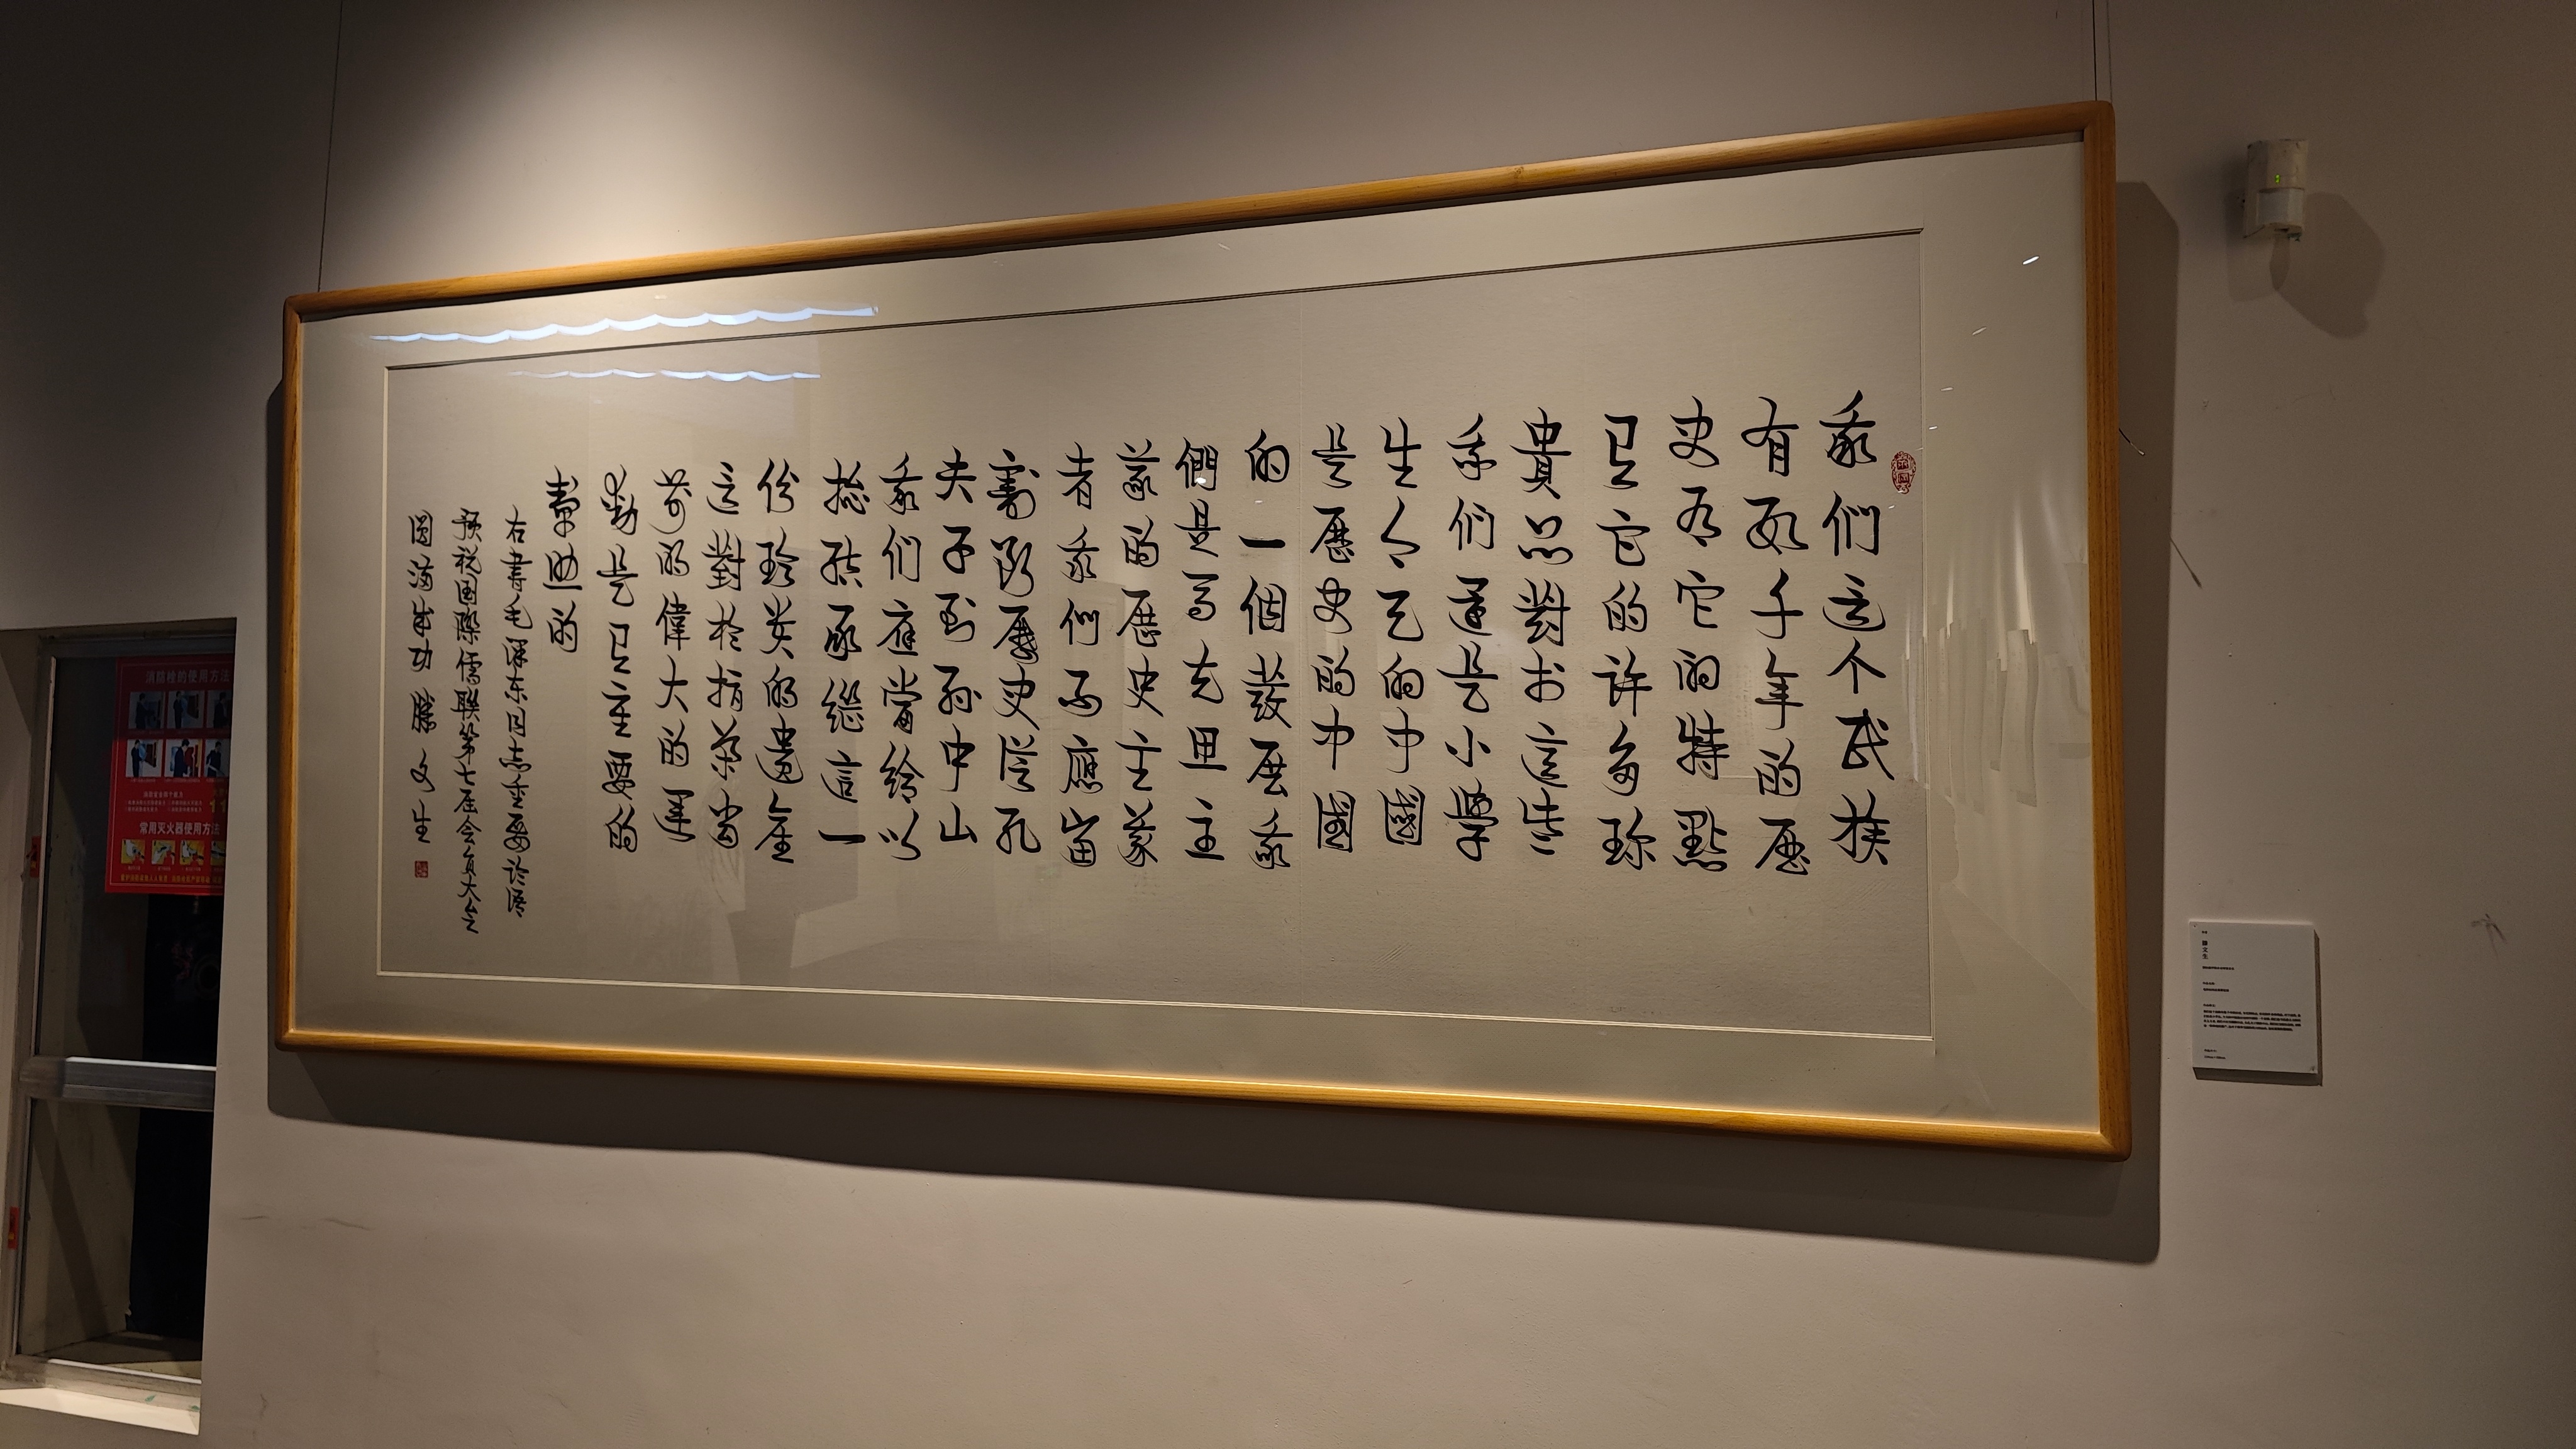 我们这个民族
有数千年的歷
史有它的特點
有它的许多珍
貴品對於這些
我们還是小學
生今天的中國
是歷史的中國
的一個發展我
們是馬克思主
義的歷史主義
者我们不應當
割断歷史從孔
夫子到孙中山
我们應當給以
總結承繼這一
份珍贵的遺產
这對於指導當
前的偉大的運
動是有重要的
幫助的
右書毛泽东同志重要论语
预祝国際儒联第七届会員大会
圆满成功 滕文生
滕文生
消防栓的使用方法
常用灭火器使用方法